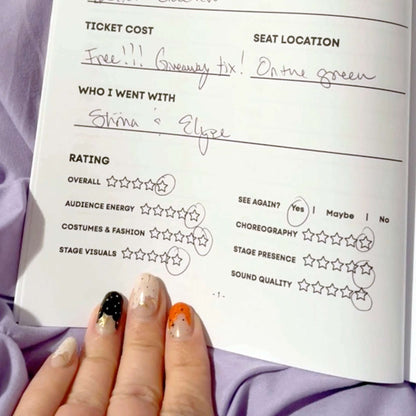 TICKET COST
Free!!! Giveaway tix!
SEAT LOCATION
On the green
WHO I WENT WITH
& Elyse
RATING
OVERALL
AUDIENCE ENERGY
COSTUMES & FASHION
STAGE VISUALS
SEE AGAIN? Yes | Maybe | No
CHOREOGRAPHY
STAGE PRESENCE
SOUND QUALITY
-1-